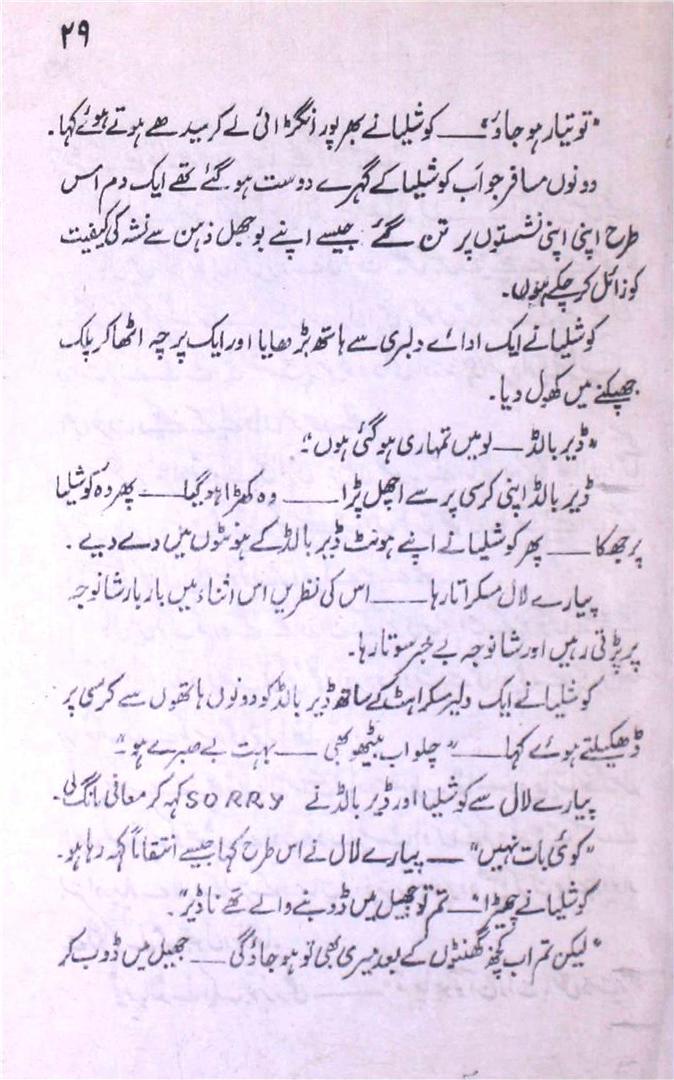 ۲۹
"تو تیار ہو جاؤ" ــــ کوشلیا نے بھرپور انگڑائی لے کر سیدھے ہوتے ہوئے کہا۔
دونوں مسافر جو اَب کوشلیا کے گہرے دوست ہو گئے تھے ایک دم اس
طرح اپنی اپنی نشستوں پر تن گئے جیسے اپنے بوجھل ذہن سے نشہ کی کیفیت
کو زائل کر چکے ہوں۔
کوشلیا نے ایک ادائے دلبری سے ہاتھ بڑھایا اور ایک پرچہ اٹھا کر پلک
جھپکنے میں کھول دیا۔
"ڈیر بالڈ ــــ لو میں تمہاری ہو گئی ہوں"۔
ڈیر بالڈ اپنی کرسی پر سے اچھل پڑا ــــ وہ کھڑا ہو گیا ــــ پھر وہ کوشلیا
پر جھکا ــــ پھر کوشلیا نے اپنے ہونٹ ڈیر بالڈ کے ہونٹوں میں دے دیے۔
پیارے لال مسکراتا رہا ــــ اس کی نظریں اس اثناء میں بار بار شانوجہ
پر پڑتی رہیں اور شانوجہ بے خبر سوتا رہا۔
کوشلیا نے ایک دلبر مسکراہٹ کے ساتھ ڈیر بالڈ کو دونوں ہاتھوں سے کرسی پر
ڈھکیلتے ہوئے کہا ــــ "چلو اب بیٹھو بھی ــــ بہت بے صبرے ہو"
پیارے لال سے کوشلیا اور ڈیر بالڈ نے SORRY کہہ کر معافی مانگ لی۔
"کوئی بات نہیں" ــــ پیارے لال نے اس طرح کہا جیسے انتقاماً کہہ رہا ہو۔
کوشلیا نے چھیڑا ــــ تم تو جھیل میں ڈوبنے والے تھے نا ڈیر"۔
"لیکن تم اب کچھ گھنٹوں کے بعد میری بھی تو ہو جاؤ گی ــــ جھیل میں ڈوب کر